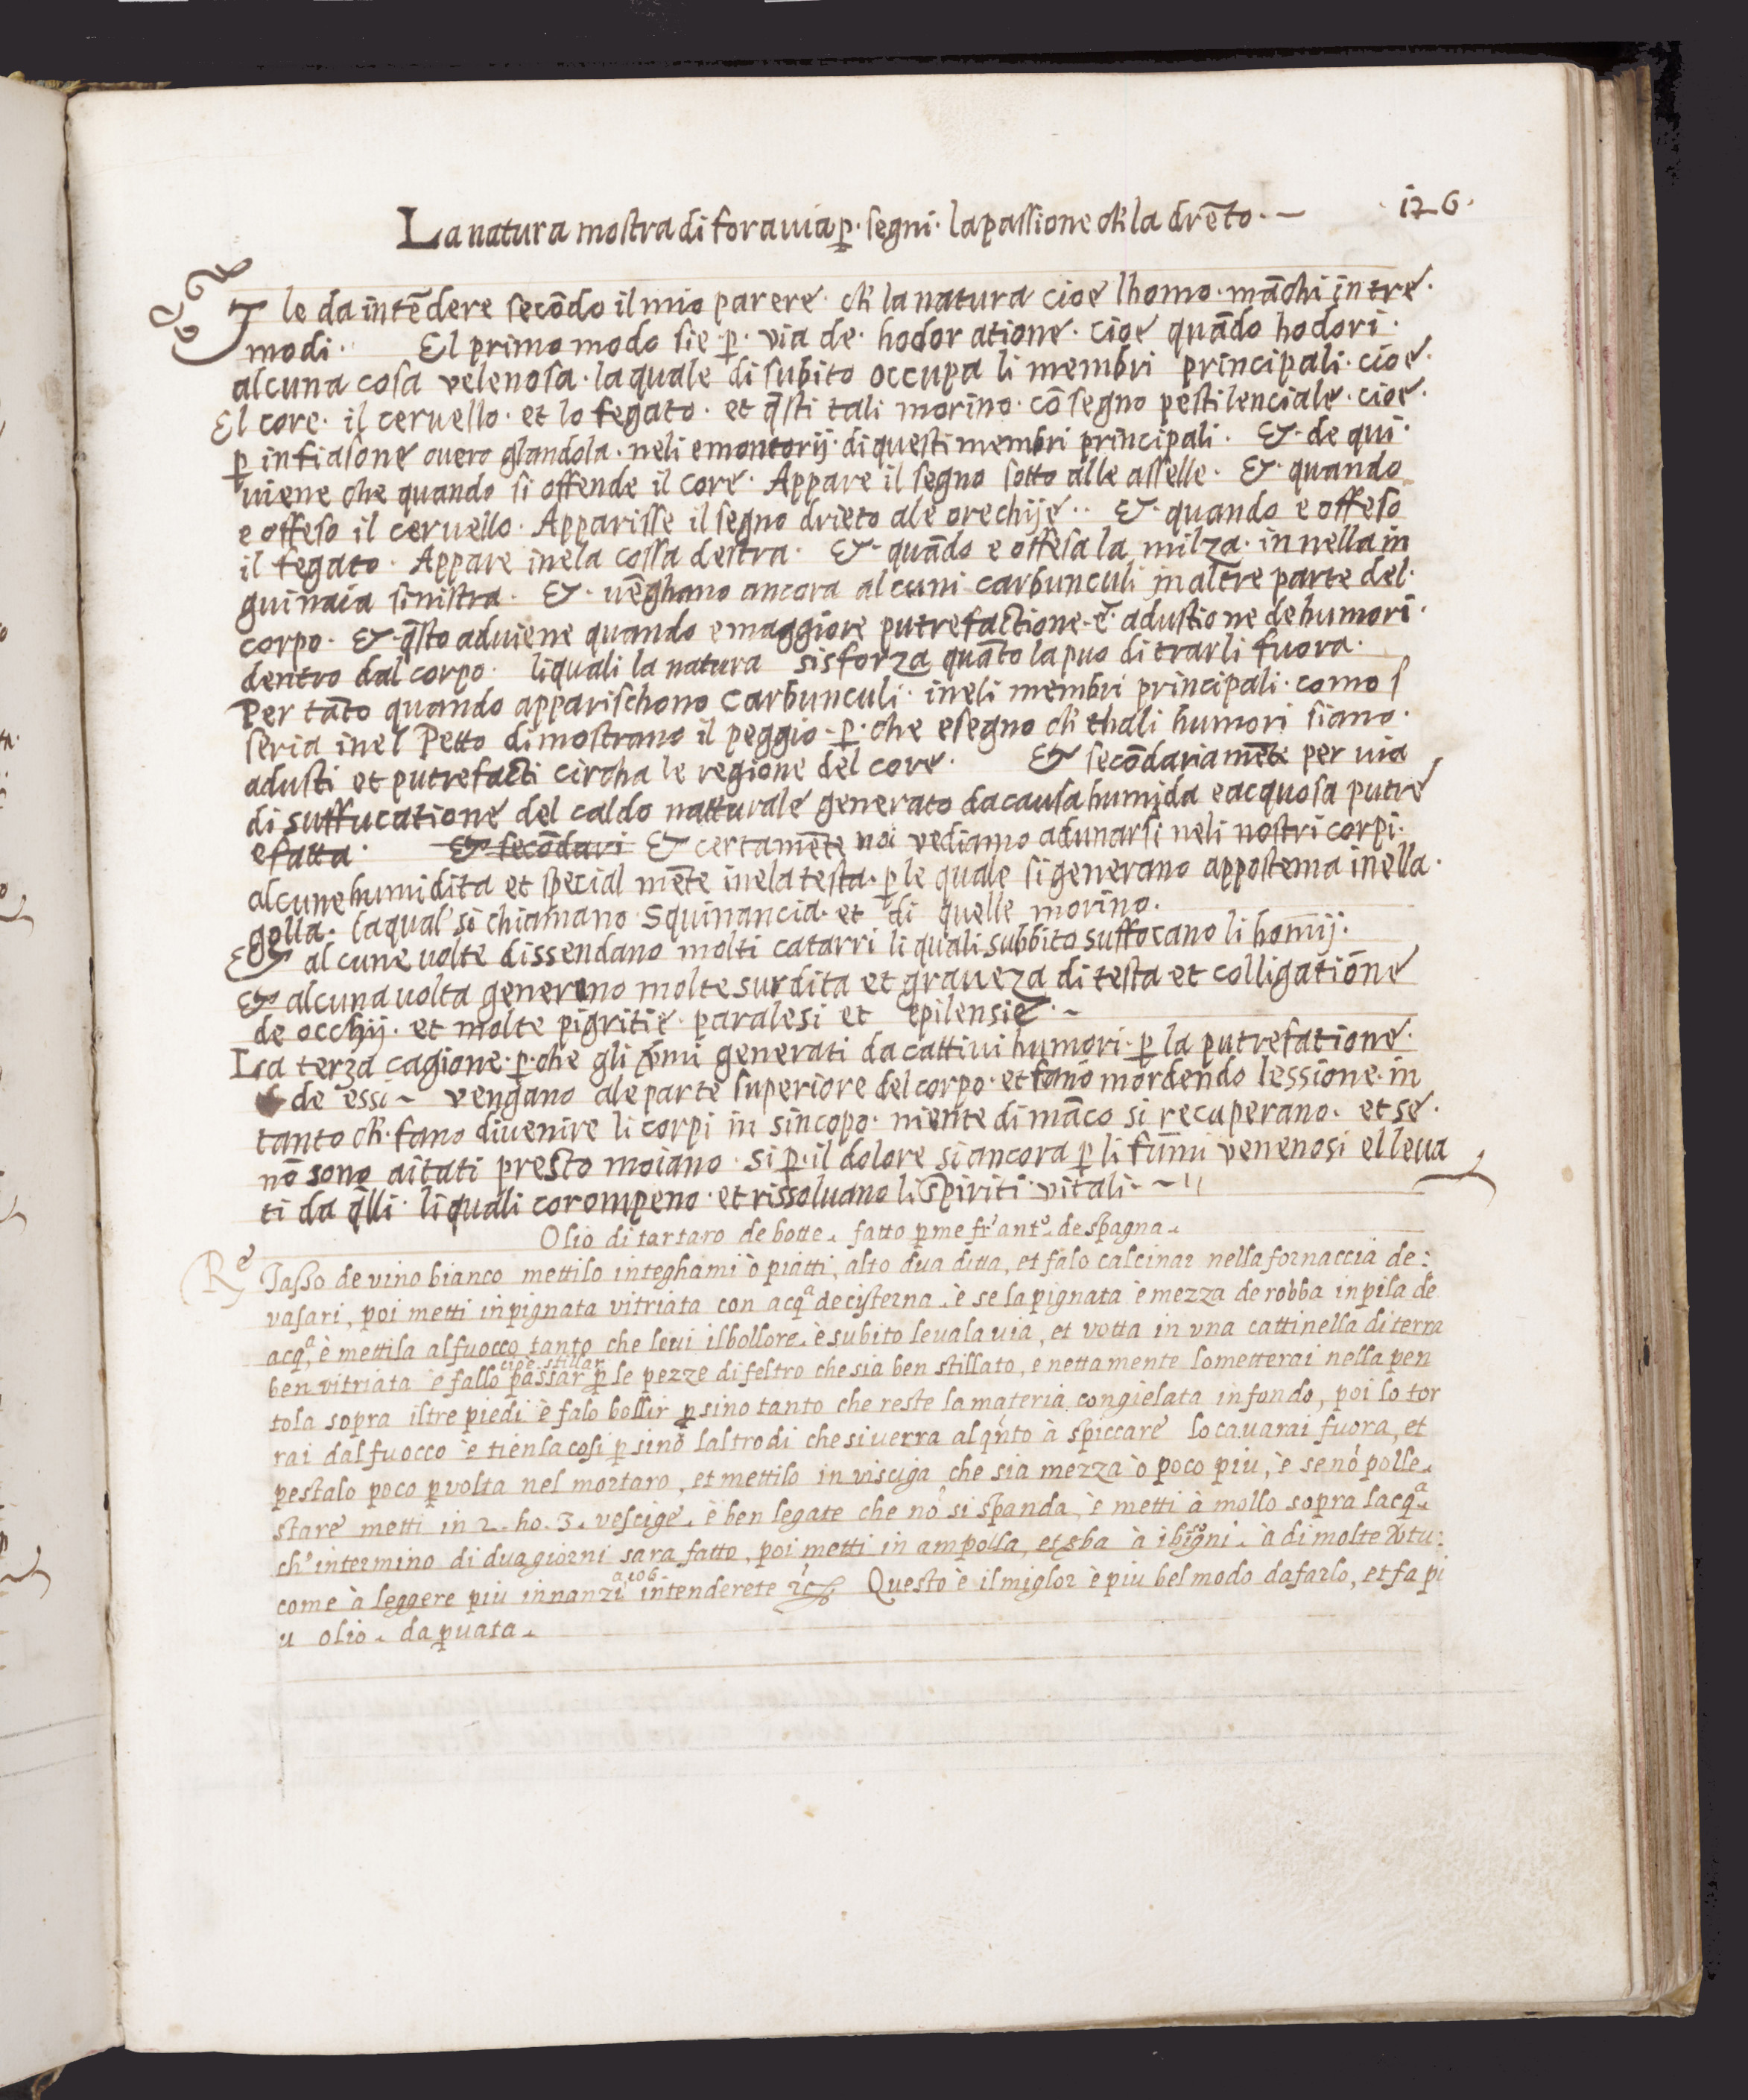 La natura mostra di fora uia p̱. segni. la passione ch̃ la drẽto.~
126.
Jle da intẽdere secõdo il mio parere. ch̃ la natura cioe lhomo. mãchi in tre.
modi. El primo modo sie. p̱. via de. hodoratione. cioe quãdo hodori.
alcuna cosa velenosa. la quale di subito occupa li membri principali. cioe.
El core. il ceruello. et lo fegato. et q̃sti tali morino. cõ segno pestilenciale. cioe.
p̱ infiasone ouero glandola. neli emontorij di questi membri principali. &. de qui.
uiene che quando si offende il core. Appare il segno sotto alle asselle. &. quando
e offeso il ceruello. Apparisse il segno drieto ale orechije.. &. quando e offeso
il fegato. Appare inela cossa destra. &. quãdo e offesa la milza. in nella in
guinaia sinistra. &. uẽghano ancora alcuni carbunculi in altre parte del.
corpo. &. q̃sto aduiene quando e maggiore putrefactione. e. adustione de humori.
dentro dal corpo. li quali la natura sisforza quãto la puo di trarli fuora.
Per tãto quando apparischono carbunculi. ineli membri principali. como s
seria inel Petto dimostrano il peggio. p̱. che e segno ch̃ thali humori siano.
adusti et putrefacti circha le regione del core. & secõdariamẽte per uia
di suffucatione del caldo natturale generato da causa humida e acquosa putre
efatta. & secõdari & certamẽte noi vediamo adunarsi neli nostri corpi.
alcune humidita et special mẽte inela testa. p̱ le quale si generano appostema inella.
golla. laqual si chiamano Squinancia. et di quelle morino.
& alcune uolte dissendano molti catarri li quali subbito suffocano li homĩj.
& alcuna uolta generano molte surdita et graueza di testa et colligatione
de occhij. et molte pigritie. paralesi et epilensie.~
La terza cagione. p̱. che gli v̉mi generati da cattiui humori. p̱ la putrefatione.
de essi ~ vengano ale parte superiore del corpo. et fano mordendo lessione. in
tanto ch̃. fano diuenire li corpi in sincopo. niente di mãco si recuperano. et se.
nõ sono aitati presto moiano. si p̱. il dolore si ancora p̱ li fumi venenosi elleua
ti da q̃lli. li quali corompeno. et rissoluano li spiriti vitali.~
Olio di tartaro de botte. fatto p̱ me frˢ antº. de spagna.
Rᵉ Tasso de vino bianco mettilo in teghami ò piatti, alto dua ditta, et falo calcinar nella fornaccia de:
vasari, poi metti in pignata vitriata con acqᵃ de cisterna. è se la pignata è mezza de robba inpila de
acqᵃ, è mettila al fuocco tanto che leui il bollore. è subito leuala uia, et votta in vna cattinella di terra
cioe stillar
ben vitriata è fallo passar p̱ le pezze di feltro che sia ben stillato, e nettamente lo metterai nella pen
tola sopra il tre piedi è falo bollir p̱ sino tanto che reste la materia congielata in fondo, poi lo tor
rai dal fuocco è tienla cosi p̱ sino laltro di che si uerra al qñto à spiccare lo cauarai fuora, et
pestalo poco p̱ volta nel mortaro, et mettilo in visciga che sia mezza ò poco piu, è se nó polle.
stare metti in 2. ho. 3. vescige. è ben legate che nó si spanda, è metti à mollo sopra lacqᵃ.
chˢ in termino di dua giorni sara fatto, poi metti in ampolla, et sba à i bigni. à di molte v̉tu:
a c 06.
come à leggere piu innanzi intenderete Questo è il miglor è piu bel modo da farlo, et fa pi
u olio. da p̱uata.